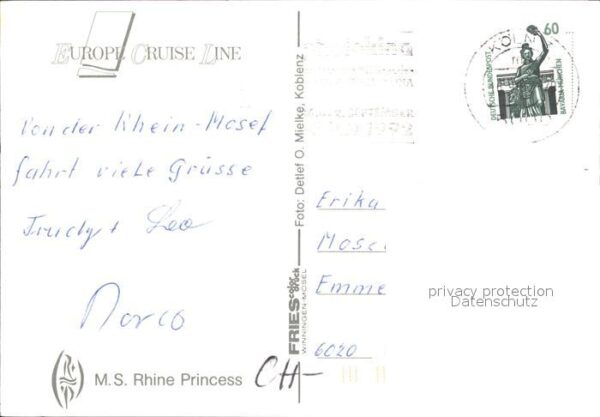 EUROPE CRUISE LINE
von der Rhein-Mosel
fahrt viele Grüsse
Trudy + Leo
Marco
M.S. Rhine Princess
Foto: Detlef O. Mielke, Koblenz
FRIES color druck
WINNINGEN-MOSEL
KÖLN
60
DEUTSCHE BUNDESPOST
BAVARIA MÜNCHEN
Erika
Mosc
Emme
6020
CH-
privacy protection
Datenschutz